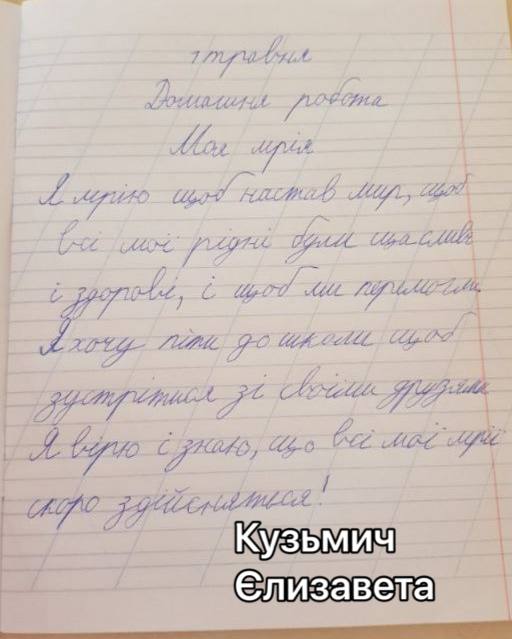 1 травня
Домашня робота
Моя мрія
Я мрію щоб настав мир, щоб
всі мої рідні були щасливі
і здорові, і щоб ми перемогли.
Я хочу піти до школи щоб
зустрітися зі своїми друзями
Я вірю і знаю, що всі мої мрії
скоро здійсняться!
Кузьмич
Єлизавета